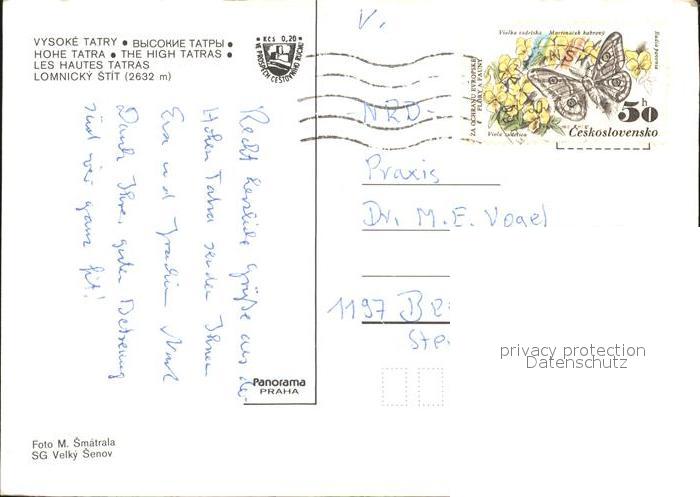 VYSOKÉ TATRY • ВЫСОКИЕ ТАТРЫ •
HOHE TATRA • THE HIGH TATRAS •
LES HAUTES TATRAS
LOMNICKÝ ŠTÍT (2632 m)
Kčs 0,20
VE PROSPĚCH CESTOVNÍHO RUCHU
V.
Viola sudetica Martináček habrový
ZA OCHRANU EVROPSKÉ
FLÓRY A FAUNY
50 h
Československo
NRD-
Praxis
Dr. M. E. Vogel
1197 BE
Ste
Recht herzliche Grüße aus der
Hohen Tatra senden Ihnen
Eva und
Dank Ihrer guten Betreuung
sind wir ganz fit!
Panorama
PRAHA
Foto M. Šmátrala
SG Velký Šenov
privacy protection
Datenschutz